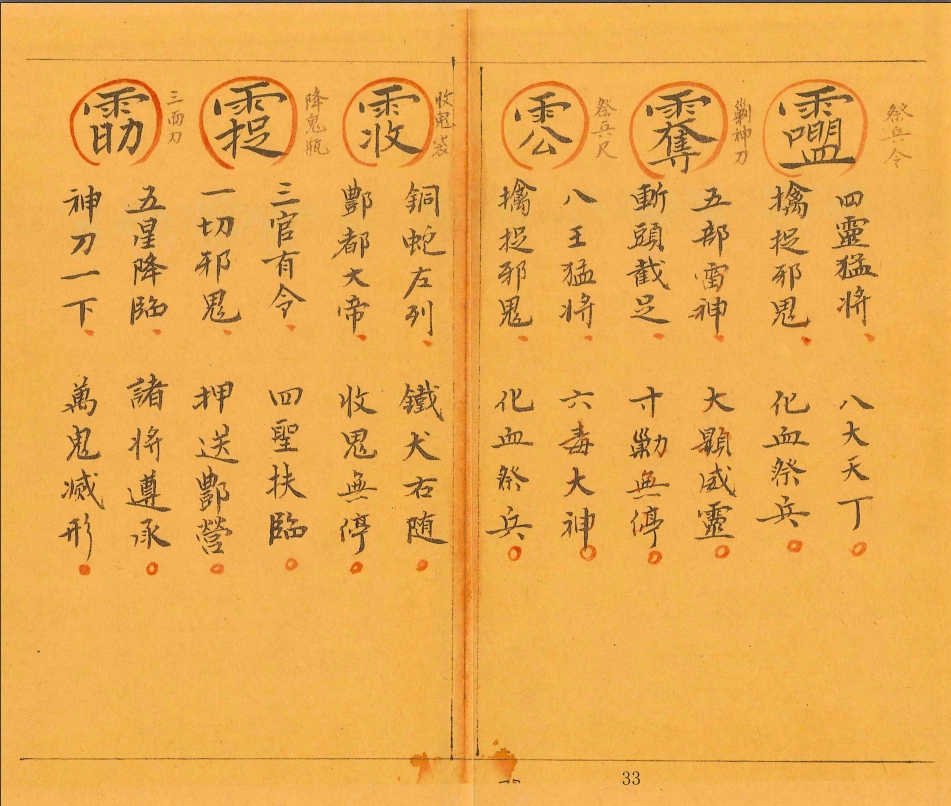 祭兵令
四靈猛將、八大天丁。
擒捉邪鬼、化血祭兵。
神刀
五部雷神、大顯威靈。
斬頭截足、寸剿無停。
祭兵尺
八王猛將、六毒大神。
擒捉邪鬼、化血祭兵。
收鬼袋
銅蛇左列、鐵犬右随。
酆都大帝、收鬼無停。
降鬼瓶
三官有令、四聖扶臨。
一切邪鬼、押送酆營。
三面刀
五星降臨、諸將遵承。
神刀一下、萬鬼滅形。
33